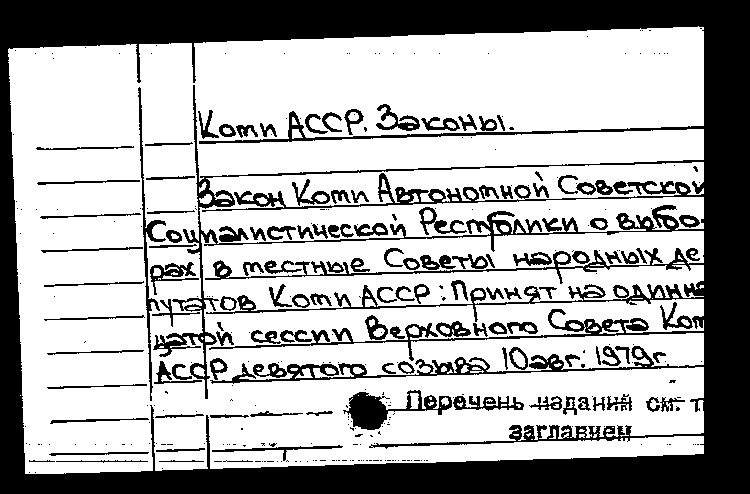 Коми АССР. Законы.
Закон Коми Автономной Советской
Социалистической Республики о выбо-
рах в местные Советы народных де-
путатов Коми АССР: Принят на одинна
цатой сессии Верховного Совета Ком
АССР девятого созыва 10 авг. 1979г.
Перечень изданий см. п
заглавием